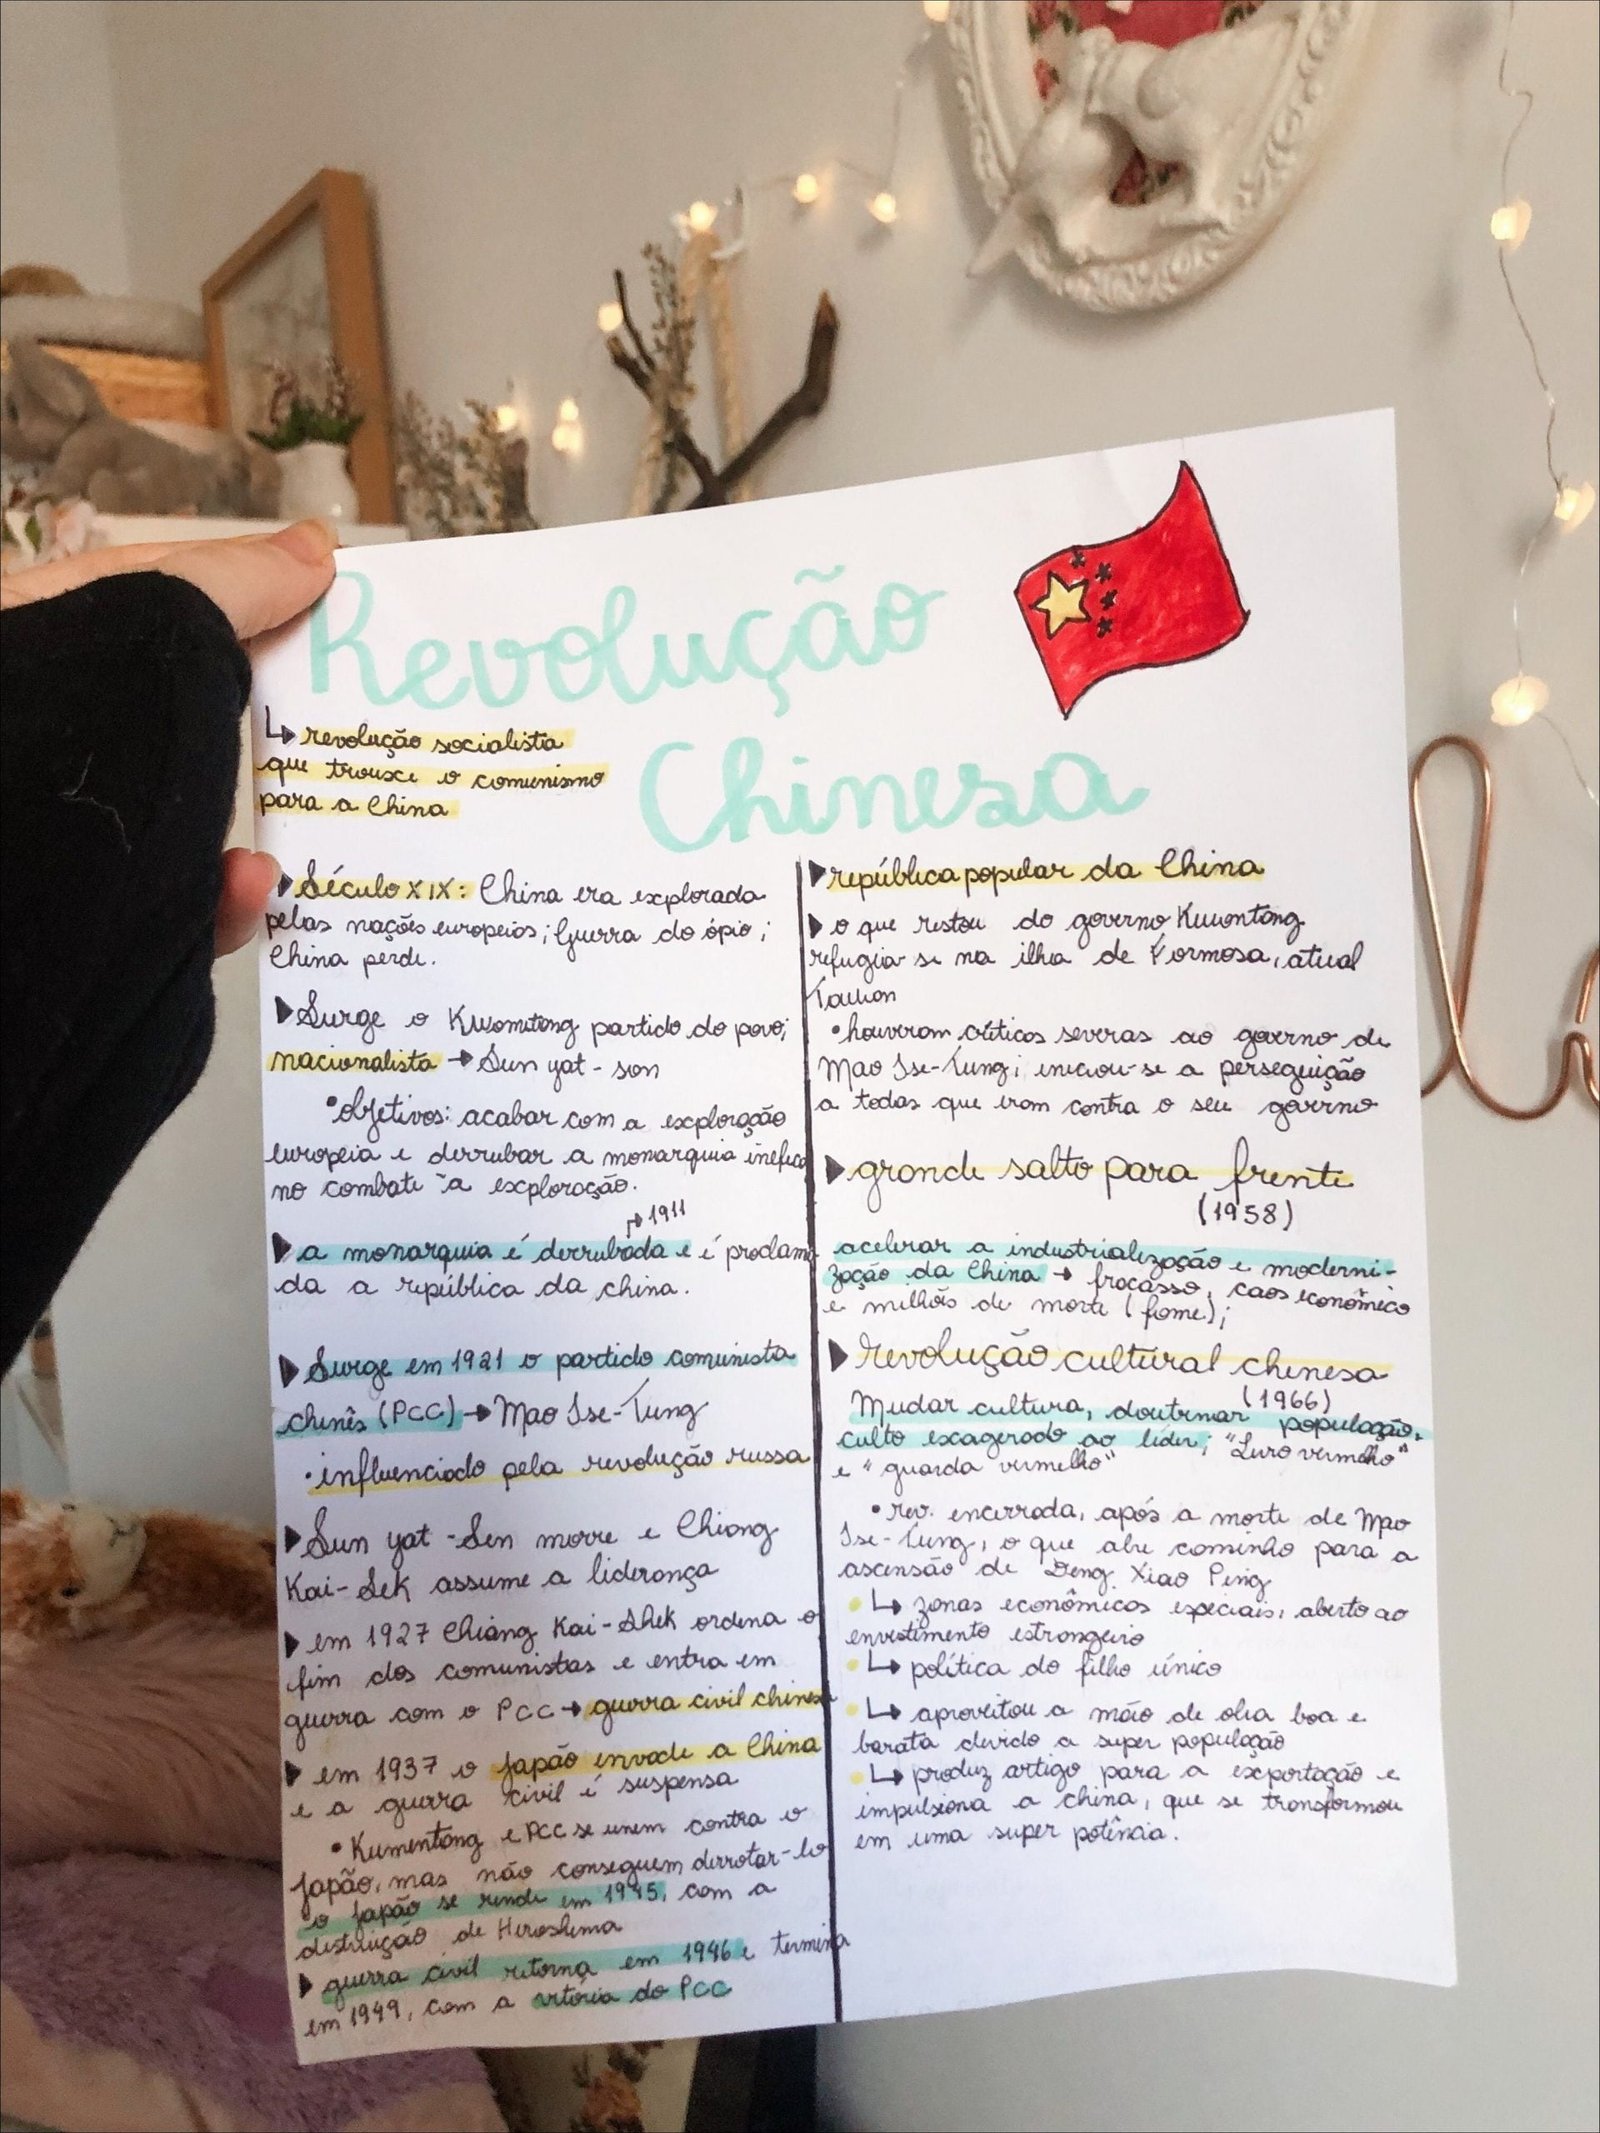 Revolução
Chinesa
↳ revolução socialista
que trouxe o comunismo
para a China
▶ Século XIX: China era explorada
pelas nações europeias; Guerra do ópio;
China perde.
▶ Surge o Kuomitang partido do povo;
nacionalista → Sun yat-son
• objetivos: acabar com a exploração
europeia e derrubar a monarquia inefica
no combate à exploração.
↱ 1911
▶ a monarquia é derrubada e é proclama
da a república da china.
▶ Surge em 1921 o partido comunista
chinês (PCC) → Mao Tse-Tung
• influenciado pela revolução russa
▶ Sun yat-Sen morre e Chiang
Kai-Sek assume a liderança
▶ em 1927 Chiang Kai-Shek ordena o
fim dos comunistas e entra em
guerra com o PCC → guerra civil chinesa
▶ em 1937 o Japão invade a China
e a guerra civil é suspensa
• Kumentang e PCC se unem contra o
Japão, mas não conseguem derrotar-lo
o Japão se rende em 1945, com a
destruição de Hiroshima
▶ guerra civil retorna em 1946 e termina
em 1949, com a vitória do PCC
▶ república popular da China
▶ o que restou do governo Kuuontang
refugia-se na ilha de Formosa, atual
Taiwan
• houveram críticas severas ao governo de
Mao Tse-Tung; iniciou-se a perseguição
a todas que eram contra o seu governo
▶ grande salto para frente
(1958)
acelerar a industrialização e moderni-
zação da China → fracasso, caos econômico
e milhões de morte (fome);
▶ revolução cultural chinesa
(1966)
Mudar cultura, doutrinar população,
culto exagerado ao líder; "Livro vermelho"
e "guarda vermelha"
• rev. encerrada, após a morte de Mao
Tse-Tung, o que abre caminho para a
ascensão de Deng Xiao Ping
↳ zonas econômicas especiais, aberto ao
envestimento estrangeiro
↳ política do filho único
↳ aproveitou a mão de obra boa e
barata devido a super população
↳ produz artigo para a exportação e
impulsiona a china, que se transformou
em uma super potência.